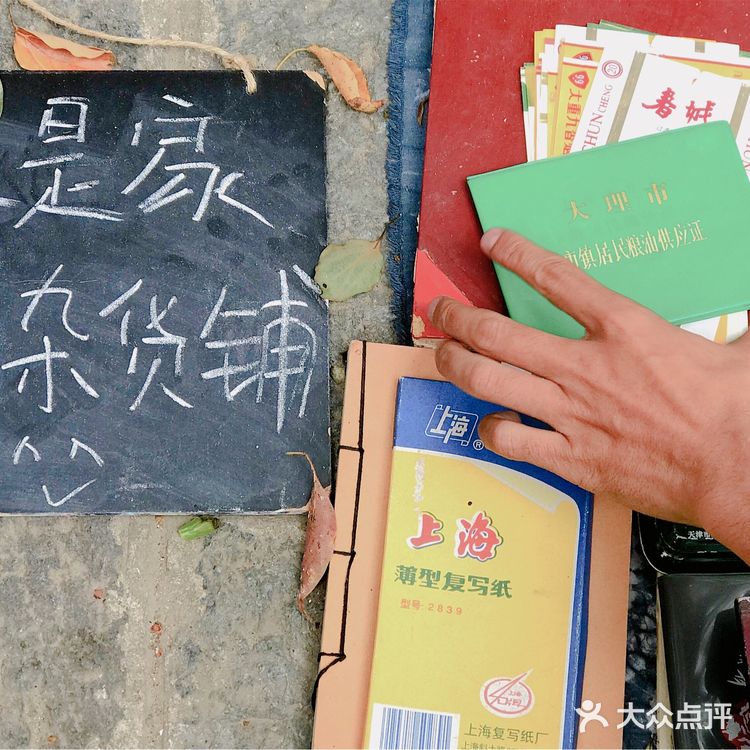 是家
杂货铺
春城
CHUN CHENG
大重九香烟
大理市
市镇居民粮油供应证
上海
®
上海
薄型复写纸
型号: 2839
上海
上海复写纸厂
天津市
大众点评